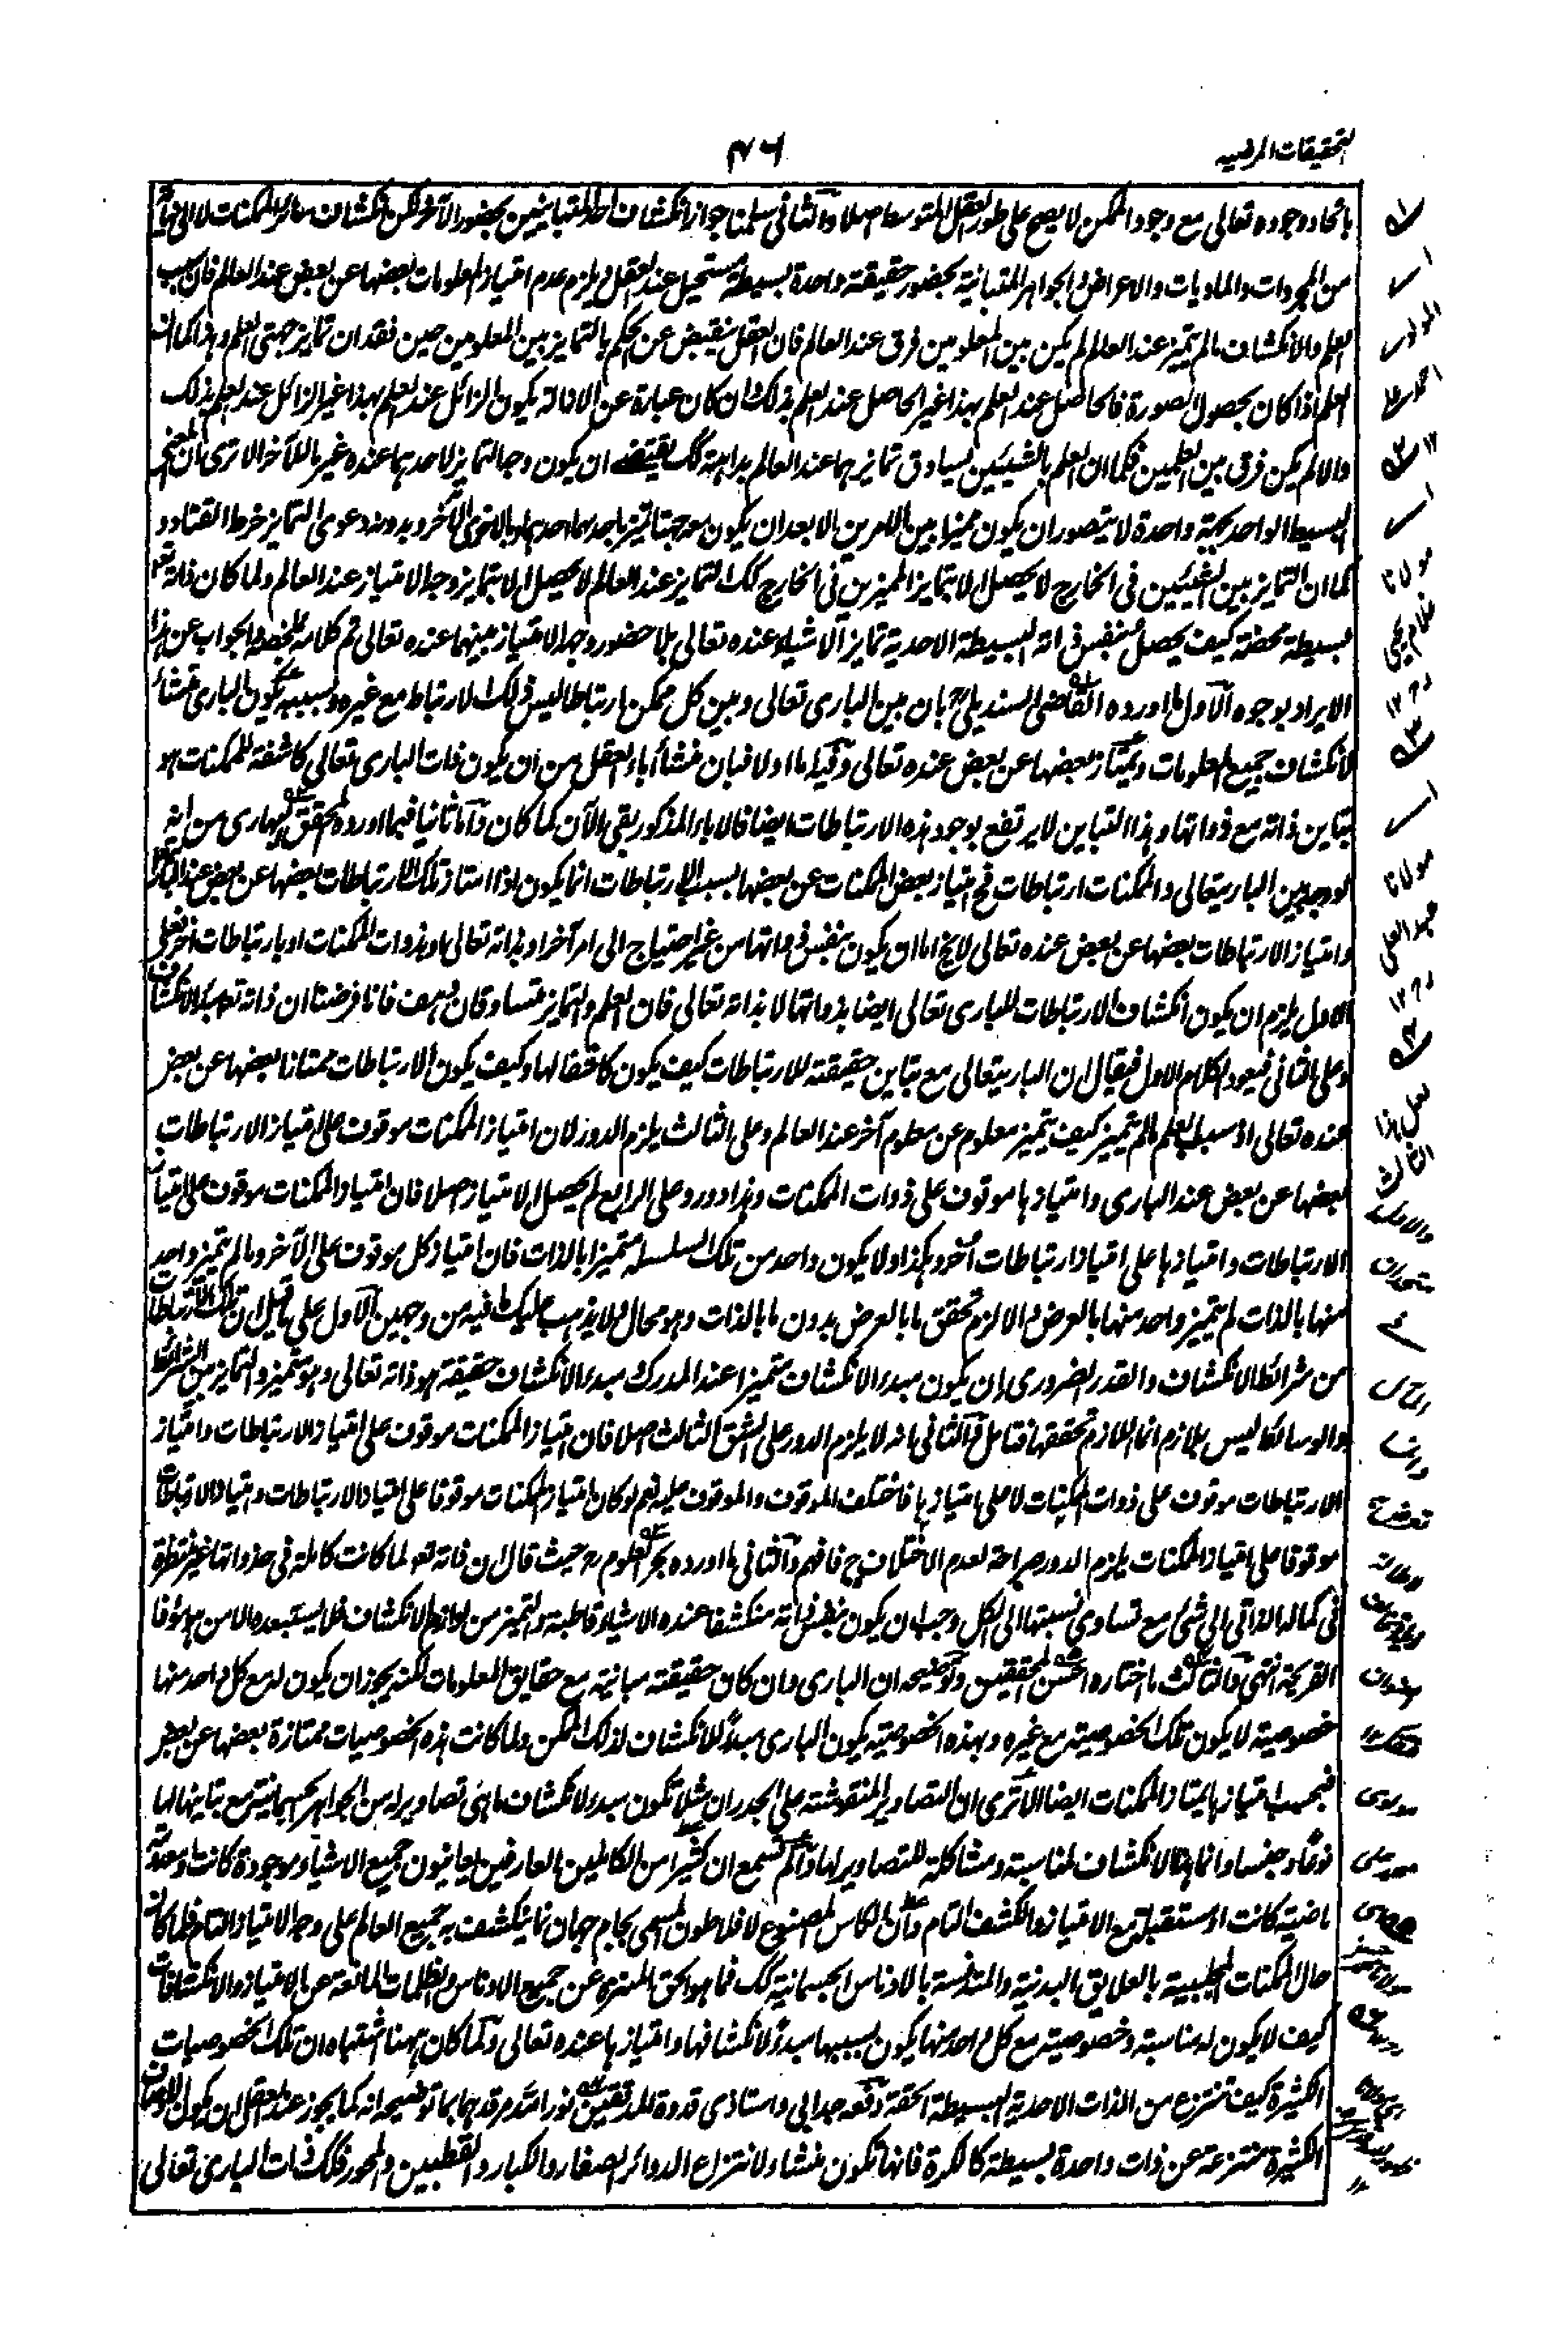 التحقيقات المرضية
٤٦
باتحاد وجوده تعالى مع وجود الممكن لا يصح على طور العقل المتوسط اصلا والثاني سلمنا جواز انكشاف احد المتباينين بحضور الآخر لكن انكشاف سائر الممكنات
من المجردات والماديات والاعراض والجواهر المتباينة بحضور حقيقة واحدة بسيطة مستحيل عند العقل ويلزم عدم امتياز المعلومات بعضها عن بعض عند العالم فان سبب
العلم والانكشاف ما لم يتميز عند العالم لم يكن بين المعلومين فرق عند العالم فان العقل ينقبض عن الحكم بالتمايز بين المعلومين حين فقدان تمايز جهتى العلم وهذا كما ان
العلم اذا كان بحصول الصورة فالحاصل عند العلم بهذا غير الحاصل عند العلم بذلك وان كان عبارة عن الازالة يكون الزائل عند العلم بهذا غير الزائل عند العلم بذلك
والا لم يكن فرق بين العلمين فكما ان العلم بالشيئين يساوق تمايزهما عند العالم بداهة كك يقتضى ان يكون وجه التمايز لاحدهما عنده غير ما للآخر الا ترى ان
البسيط الواحد بجهة واحدة لا يتصور ان يكون مميزا بين الامرين الا بعد ان يكون معه جهتا تميز باحدهما احدهما وبالاخرى الآخر وبدونه دعوى التمايز خرط القتاد و
كما ان التمايز بين الشيئين فى الخارج لا يحصل الا بتمايز المميزين فى الخارج كك التمايز عند العالم لا يحصل الا بتمايز وجه الامتياز عند العالم ولما كان ذاته تعم
بسيطة محضة كيف يحصل بنفس ذاته البسيطة الاحدية تمايز الاشياء عنده تعالى بلا حضور وجه الامتياز بينهما عنده تعالى تم كلامه ملخصه والجواب عن هذا
الايراد بوجوه الاول ما اورده القاضى السنديلى رح بان بين البارى تعالى وبين كل ممكن ارتباطا ليس ذلك الارتباط مع غيره وبسببه يكون البارى منشأ
لانكشاف جميع المعلومات ويمتاز بعضها عن بعض عنده تعالى وفيه اما اولا فبان منشأ اباء العقل من ان يكون ذات البارى تعالى كاشفة للممكنات هو
تباين ذاته مع ذواتها وهذا التباين لا يرتفع بوجود هذه الارتباطات ايضا فالاباء المذكور بقى الآن كما كان واما ثانيا فبما اورده المحقق البهارى من انه
لو وجد بين البارى تعالى والممكنات ارتباطات فح امتياز بعض الممكنات عن بعضها بسبب الارتباطات انما يكون اذا امتاز تلك الارتباطات بعضها عن بعض عند البارى
وامتياز الارتباطات بعضها عن بعض عنده تعالى لا يخ اما ان يكون بنفس ذواتها من غير احتياج الى امر آخر او بذاته تعالى او بذوات الممكنات او بارتباطات اخر فعلى
الاول يلزم ان يكون انكشاف الارتباطات للبارى تعالى ايضا بذواتها لا بذاته تعالى فان العلم والتمايز متساوقان هف فانا فرضنا ان ذاته تعم مبدء الانكشاف
وعلى الثانى فيعود الكلام الاول فيقال ان البارى تعالى مع تباين حقيقته للارتباطات كيف يكون كاشفا لها وكيف يكون الارتباطات ممتازا بعضها عن بعض
عنده تعالى اذ سبب العلم ما لم يتميز كيف يتميز معلوم عن معلوم آخر عند العالم وعلى الثالث يلزم الدور لان امتياز الممكنات موقوف على امتياز الارتباطات
بعضها عن بعض عند البارى وامتيازها موقوف على ذوات الممكنات وهذا دور وعلى الرابع لم يحصل الامتياز اصلا فان امتياز الممكنات موقوف على امتياز
الارتباطات وامتيازها على امتياز ارتباطات اخر وهكذا ولا يكون واحد من تلك السلسلة متميزا بالذات فان امتياز كل موقوف على الآخر وما لم يتميز واحد
منها بالذات لم يتميز واحد منها بالعرض والا لزم تحقق ما بالعرض بدون ما بالذات وهو محال ولا يذهب عليك ما فيه من وجهين الاول على ما قيل ان تلك الارتباطات
من شرائط الانكشاف والقدر الضرورى ان يكون مبدء الانكشاف متميزا عند المدرك ومبدء الانكشاف حقيقة هو ذاته تعالى وهو متميز والتمايز بين الشرائط
والوسائط ليس بلازم انما اللازم تحققها فتامل والثانى انه لا يلزم الدور على الشق الثالث اصلا فان امتياز الممكنات موقوف على امتياز الارتباطات وامتياز
الارتباطات موقوف على ذوات الممكنات لا على امتيازها فاختلف الموقوف والموقوف عليه نعم لو كان امتياز الممكنات موقوفا على امتياز الارتباطات وامتياز الارتباطات
موقوفا على امتياز الممكنات يلزم الدور صراحة لعدم الاختلاف ح فافهم والثانى ما اورده بحر العلوم رح حيث قال ان ذاته تعم لما كانت كاملة فى حد ذواتها غير منتظرة
فى كماله الذاتى الى شئ مع تساوى نسبتها الى الكل وجب ان يكون بنفس ذاته منكشفا عنده الاشياء قاطبة والتميز من لوازم الانكشاف فلا يستبعده الا من هو مؤف
القريحة انتهى والثالث ما اختاره احسن المحققين وتوضيحه ان البارى وان كان حقيقته مبائنة مع حقايق المعلومات لكنه يجوز ان يكون له مع كل واحد منها
خصوصية لا يكون تلك الخصوصية مع غيره وبهذه الخصوصية يكون البارى مبدءً لانكشاف لذلك الممكن ولما كانت هذه الخصوصيات ممتازة بعضها عن بعض
فبحسب امتيازها يمتاز الممكنات ايضا الا ترى ان التصاوير المنقوشة على الجدران مثلا تكون مبدء لانكشاف ما هى تصاوير له من الجواهر الجسمانية مع تباينها لها
نوعا وجنسا وانما هذا الانكشاف لمناسبة ومشاكلة للتصاوير لها والم تسمع ان كثيرا من الكاملين العارفين يعاينون جميع الاشياء موجودة كانت او معدومة
ماضية كانت او مستقبلة مع الامتياز والكشف التام وان الكاس المصنوع لافلاطون المسمى بجام جهان نما ينكشف به جميع العالم على وجه الامتياز التام فلما كان
حال الممكنات المحتجبة بالعلايق البدنية والمتدنسة بالادناس الجسمانية كك فما هو الحق المنزه عن جميع الادناس والظلمات المانعة عن الامتياز والانكشافات
كيف لا يكون له مناسبة وخصوصية مع كل واحد منها يكون بسببها مبدءً لانكشافها وامتيازها عنده تعالى ولما كان ههنا اشتباه ان تلك الخصوصيات
الكثيرة كيف تنتزع من الذات الاحدية البسيطة الحقة دفعه جد ابى واستاذى قدوة المدققين نور الله مرقدهما بما توضيحه انه كما يجوز عند العقل ان يكون الاوصاف
الكثيرة منتزعة عن ذات واحدة بسيطة كالكرة فانها تكون منشاء لانتزاع الدوائر الصغار والكبار والقطبين والمحور فكك ذات البارى تعالى